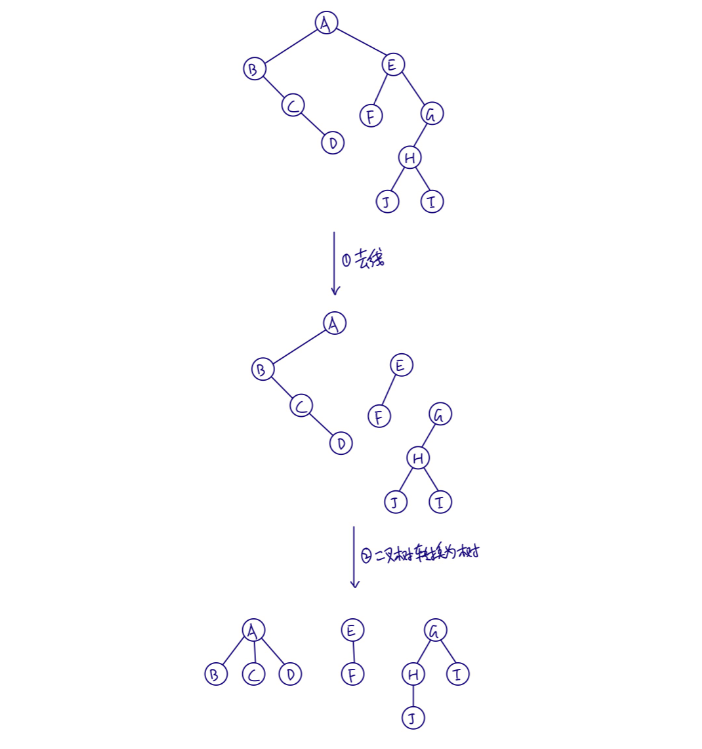 A
B E
C F G
D
H
J I
①去线
A
B E
C F G
D H
J I
②二叉树转换为树
A E G
B C D F H I
J